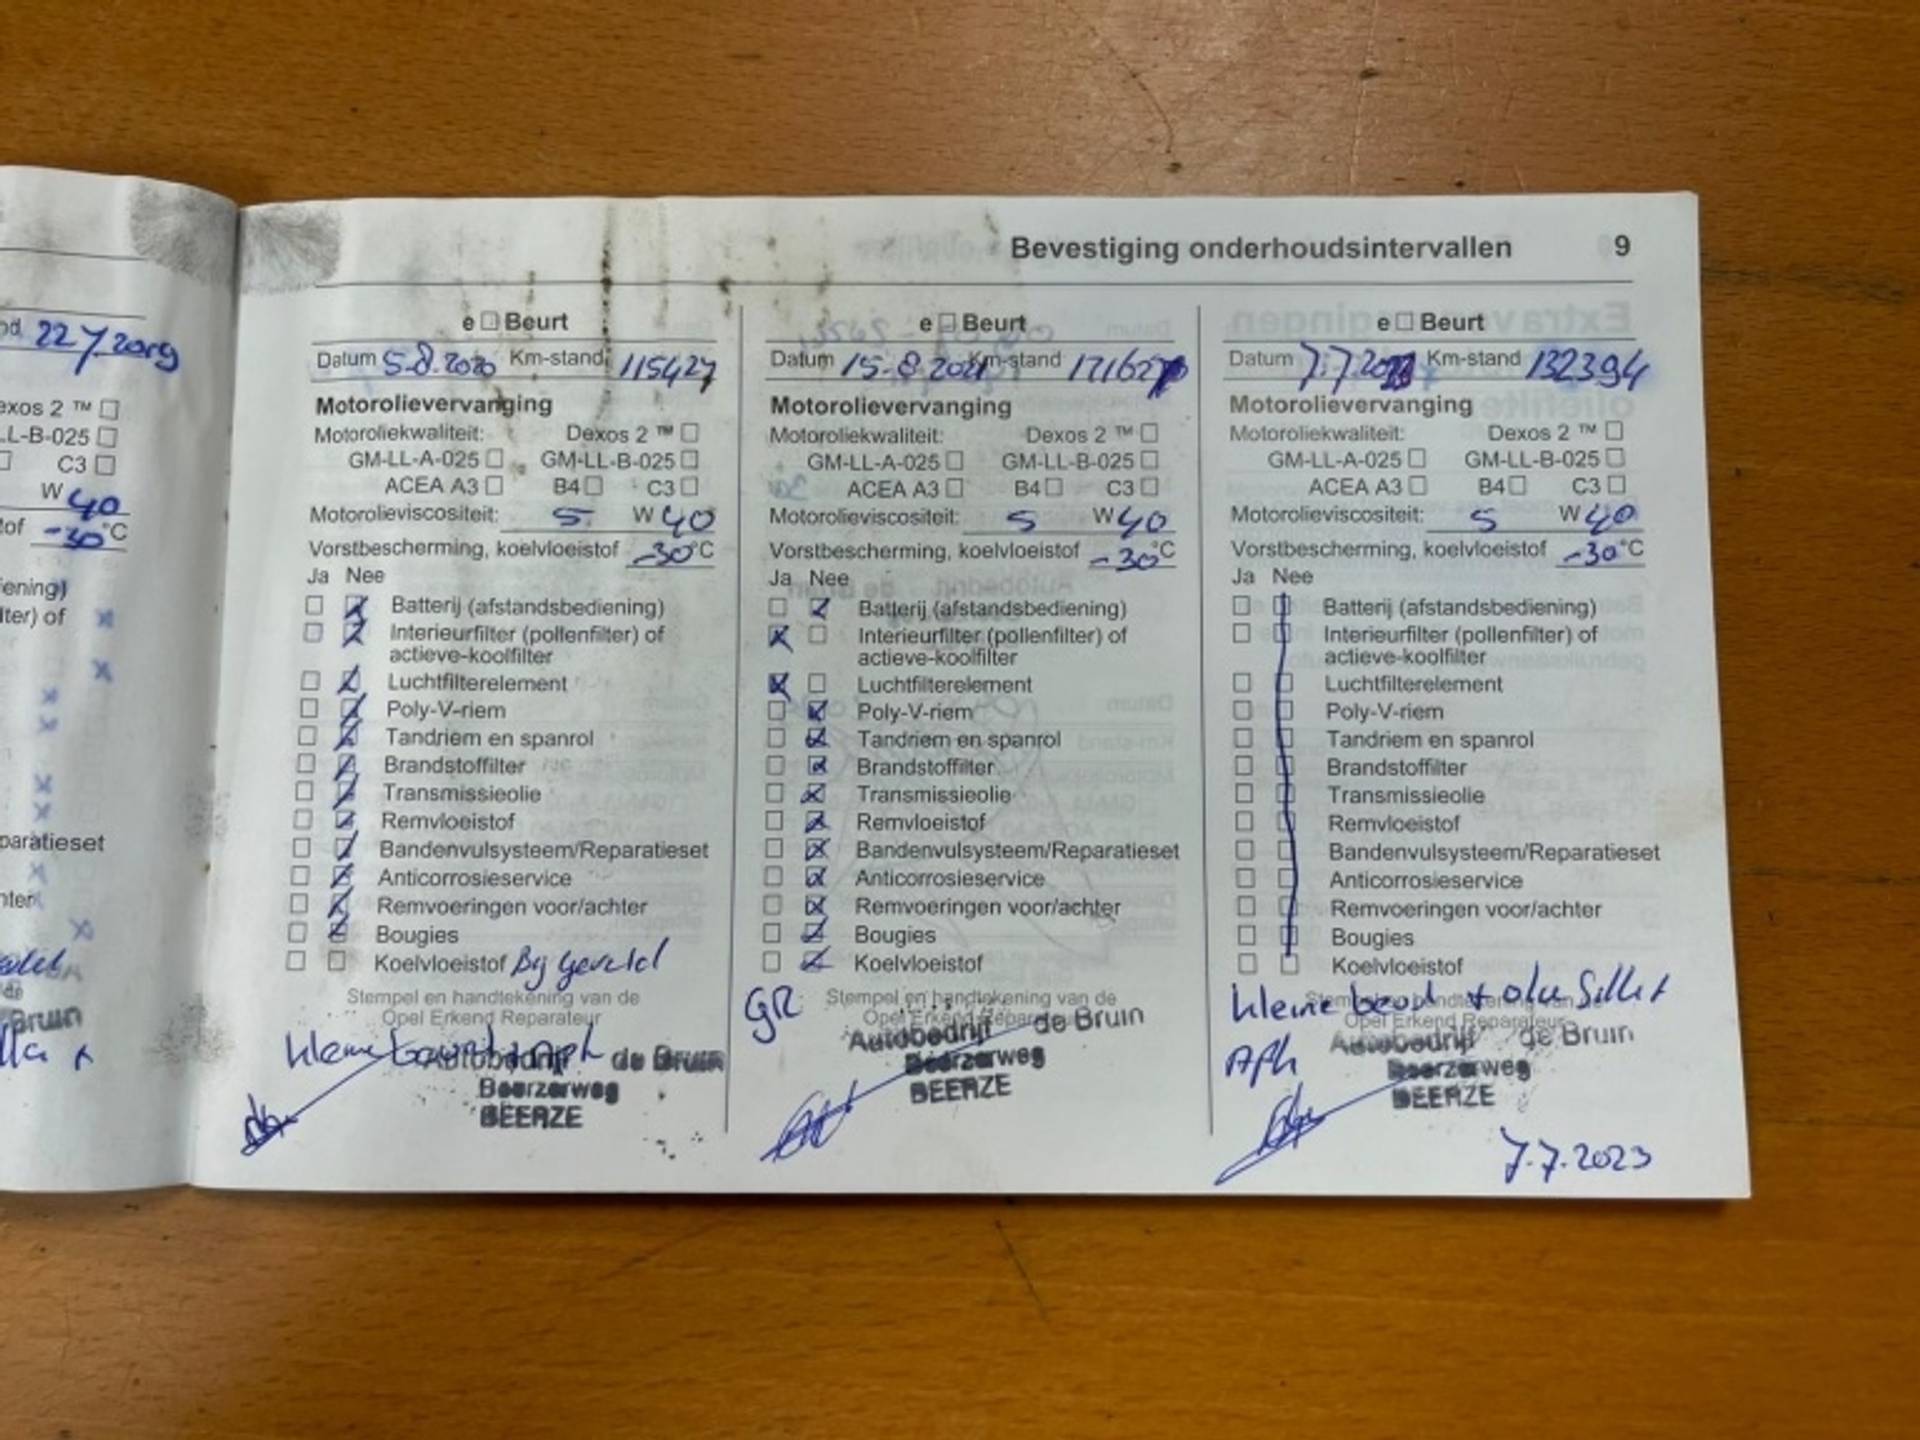 22 7 2019
exos 2 ™
LL-B-025
C3
W 40
tof -30 °C
ening)
lter) of
paratieset
nter
Bruin
Bevestiging onderhoudsintervallen 9
e Beurt
Datum 5-8.2020 Km-stand 115427
Motorolievervanging
Motoroliekwaliteit: Dexos 2 ™
GM-LL-A-025 GM-LL-B-025
ACEA A3 B4 C3
Motorolieviscositeit: 5 W 40
Vorstbescherming, koelvloeistof -30 °C
Ja Nee
Batterij (afstandsbediening)
Interieurfilter (pollenfilter) of
actieve-koolfilter
Luchtfilterelement
Poly-V-riem
Tandriem en spanrol
Brandstoffilter
Transmissieolie
Remvloeistof
Bandenvulsysteem/Reparatieset
Anticorrosieservice
Remvoeringen voor/achter
Bougies
Koelvloeistof Bij gevuld
Stempel en handtekening van de
Opel Erkend Reparateur
kleine beurt + Aph
Autobedrijf de Bruin
Beerzerweg
BEERZE
e Beurt
Datum 15-8 2021 Km-stand
Motorolievervanging
Motoroliekwaliteit: Dexos 2 ™
GM-LL-A-025 GM-LL-B-025
ACEA A3 B4 C3
Motorolieviscositeit: 5 W 40
Vorstbescherming, koelvloeistof -30 °C
Ja Nee
Batterij (afstandsbediening)
Interieurfilter (pollenfilter) of
actieve-koolfilter
Luchtfilterelement
Poly-V-riem
Tandriem en spanrol
Brandstoffilter
Transmissieolie
Remvloeistof
Bandenvulsysteem/Reparatieset
Anticorrosieservice
Remvoeringen voor/achter
Bougies
Koelvloeistof
GR
Stempel en handtekening van de
Opel Erkend Reparateur
Autobedrijf de Bruin
Beerzerweg
BEERZE
e Beurt
Datum 7.7 Km-stand 132394
Motorolievervanging
Motoroliekwaliteit: Dexos 2 ™
GM-LL-A-025 GM-LL-B-025
ACEA A3 B4 C3
Motorolieviscositeit: 5 W 40
Vorstbescherming, koelvloeistof -30 °C
Ja Nee
Batterij (afstandsbediening)
Interieurfilter (pollenfilter) of
actieve-koolfilter
Luchtfilterelement
Poly-V-riem
Tandriem en spanrol
Brandstoffilter
Transmissieolie
Remvloeistof
Bandenvulsysteem/Reparatieset
Anticorrosieservice
Remvoeringen voor/achter
Bougies
Koelvloeistof
kleine beurt +
Stempel en handtekening van de
Opel Erkend Reparateur
Aph
Autobedrijf de Bruin
Beerzerweg
BEERZE
7.7.2023